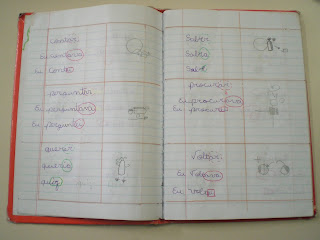 contar
Eu contara
Eu conto
perguntar
Eu perguntara
Eu pergunto
querer
queria
quer
Saber
Sabia
Sabe
procurar
Eu procurava
Eu procuro
Voltar
Eu Voltava
Eu Volto